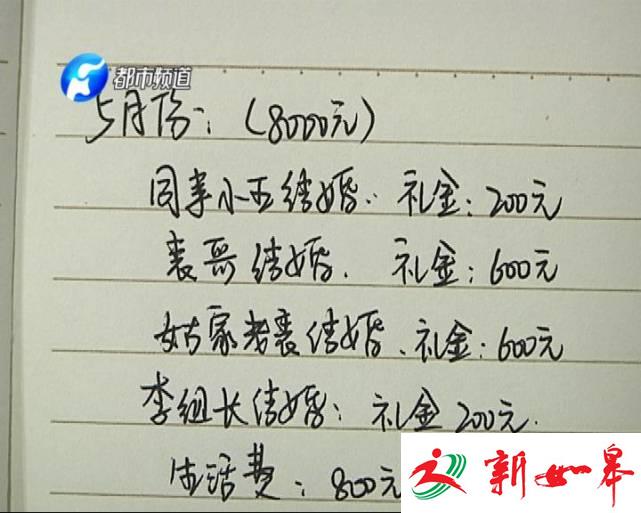 都市频道
5月份：（8000元）
同事小王结婚：礼金：200元
表哥结婚．礼金：600元
姑家老表结婚．礼金：600元
李组长结婚：礼金200元．
生活费：800元
新如皋